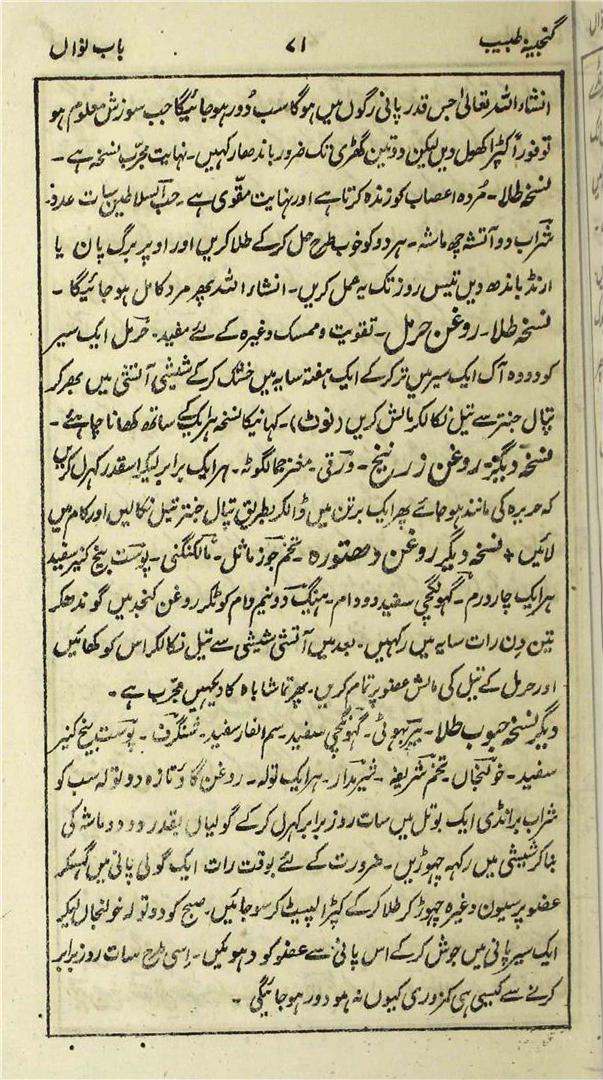 گنجینۂ طبیب ۷۱ باب نواں
انشاء اللہ تعالیٰ جس قدر پانی رگوں میں ہوگا سب دُور ہوجائیگا جب سوزش معلوم ہو
تو فوراً کپڑا کھول دیں لیکن دو تین گھڑی تک ضرور باندھا رکہیں۔ نہایت مجرّب نسخہ ہے۔
نسخہ طلا۔ مُردہ اعصاب کو زندہ کرتا ہے اور نہایت مقوّی ہے۔ حب السلاطین سات عدد
شراب دو آتشہ چھ ماشہ۔ ہر دو کو خوب طرح حل کرکے طلا کریں اور اوپر برگ پان یا
ارنڈ باندھ دیں تیس روز تک یہ عمل کریں۔ انشاء اللہ پھر مرد کامل ہوجائیگا۔
نسخہ طلا۔ روغن حرمل۔ تقویت و ممسک وغیرہ کے لئے مفید۔ حرمل ایک سیر
کو دودہ آک ایک سیر میں تر کرکے ایک ہفتہ سایہ میں خشک کرکے شیشی آتشی میں بھر کر
پتال جنتر سے تیل نکالکر مالش کریں (نوٹ)۔ کہانیکا نسخہ ہر ایک کے ساتھ کھانا چاہئے۔
نسخہ دیگر۔ روغن زرنیخ۔ ورقی۔ مغز جمالگوٹہ۔ ہر ایک برابر لیکر اسقدر کہرل کریں
کہ حریرہ کی مانند ہوجائے پھر ایک برتن میں ڈالکر بطریق پتال جنتر تیل نکالیں اور کام میں
لائیں + نسخہ دیگر روغن دھتورہ۔ تخم جوز ماثل۔ مالکنگنی۔ پوست بیخ کنیر سفید
ہر ایک چار درم۔ گہونگچی سفید دو دام۔ ہینگ دو نیم دام کو ٹکر روغن کنجد میں گوندھکر
تین دن رات سایہ میں رکہیں۔ بعد میں آتشی شیشی سے تیل نکالکر اس کو کھائیں
اور حرمل کے تیل کی مالش عضو پر تمام کریں۔ پھر تماشا باہ کا دیکہیں مجرّب ہے۔
دیگر نسخہ حبوب طلا۔ بیربہوٹی۔ گہونگچی سفید۔ سم الفار سفید۔ شنگرف۔ پوست بیخ کنیر
سفید۔ خولنجاں۔ تخم شریفہ۔ شیر مدار۔ ہر ایک تولہ۔ روغن گاؤ تازہ دو تولہ سب کو
شراب برانڈی ایک بوتل میں سات روز برابر کہرل کرکے گولیاں بقدر دو دو ماشہ کی
بنا کر شیشی میں رکہہ چہوڑیں۔ ضرورت کے لئے بوقت رات ایک گولی پانی میں گہسکر
عضو پر سیون وغیرہ چہوڑ کر طلا کرکے کپڑا لپیٹ کر سوجائیں۔ صبح کو دو تولہ خولنجاں لیکر
ایک سیر پانی میں جوش کرکے اس پانی سے عضو کو دہوئیں۔ اسی طرح سات روز برابر
کرنے سے کیسی ہی کمزوری کیوں نہ ہو دور ہوجائیگی۔